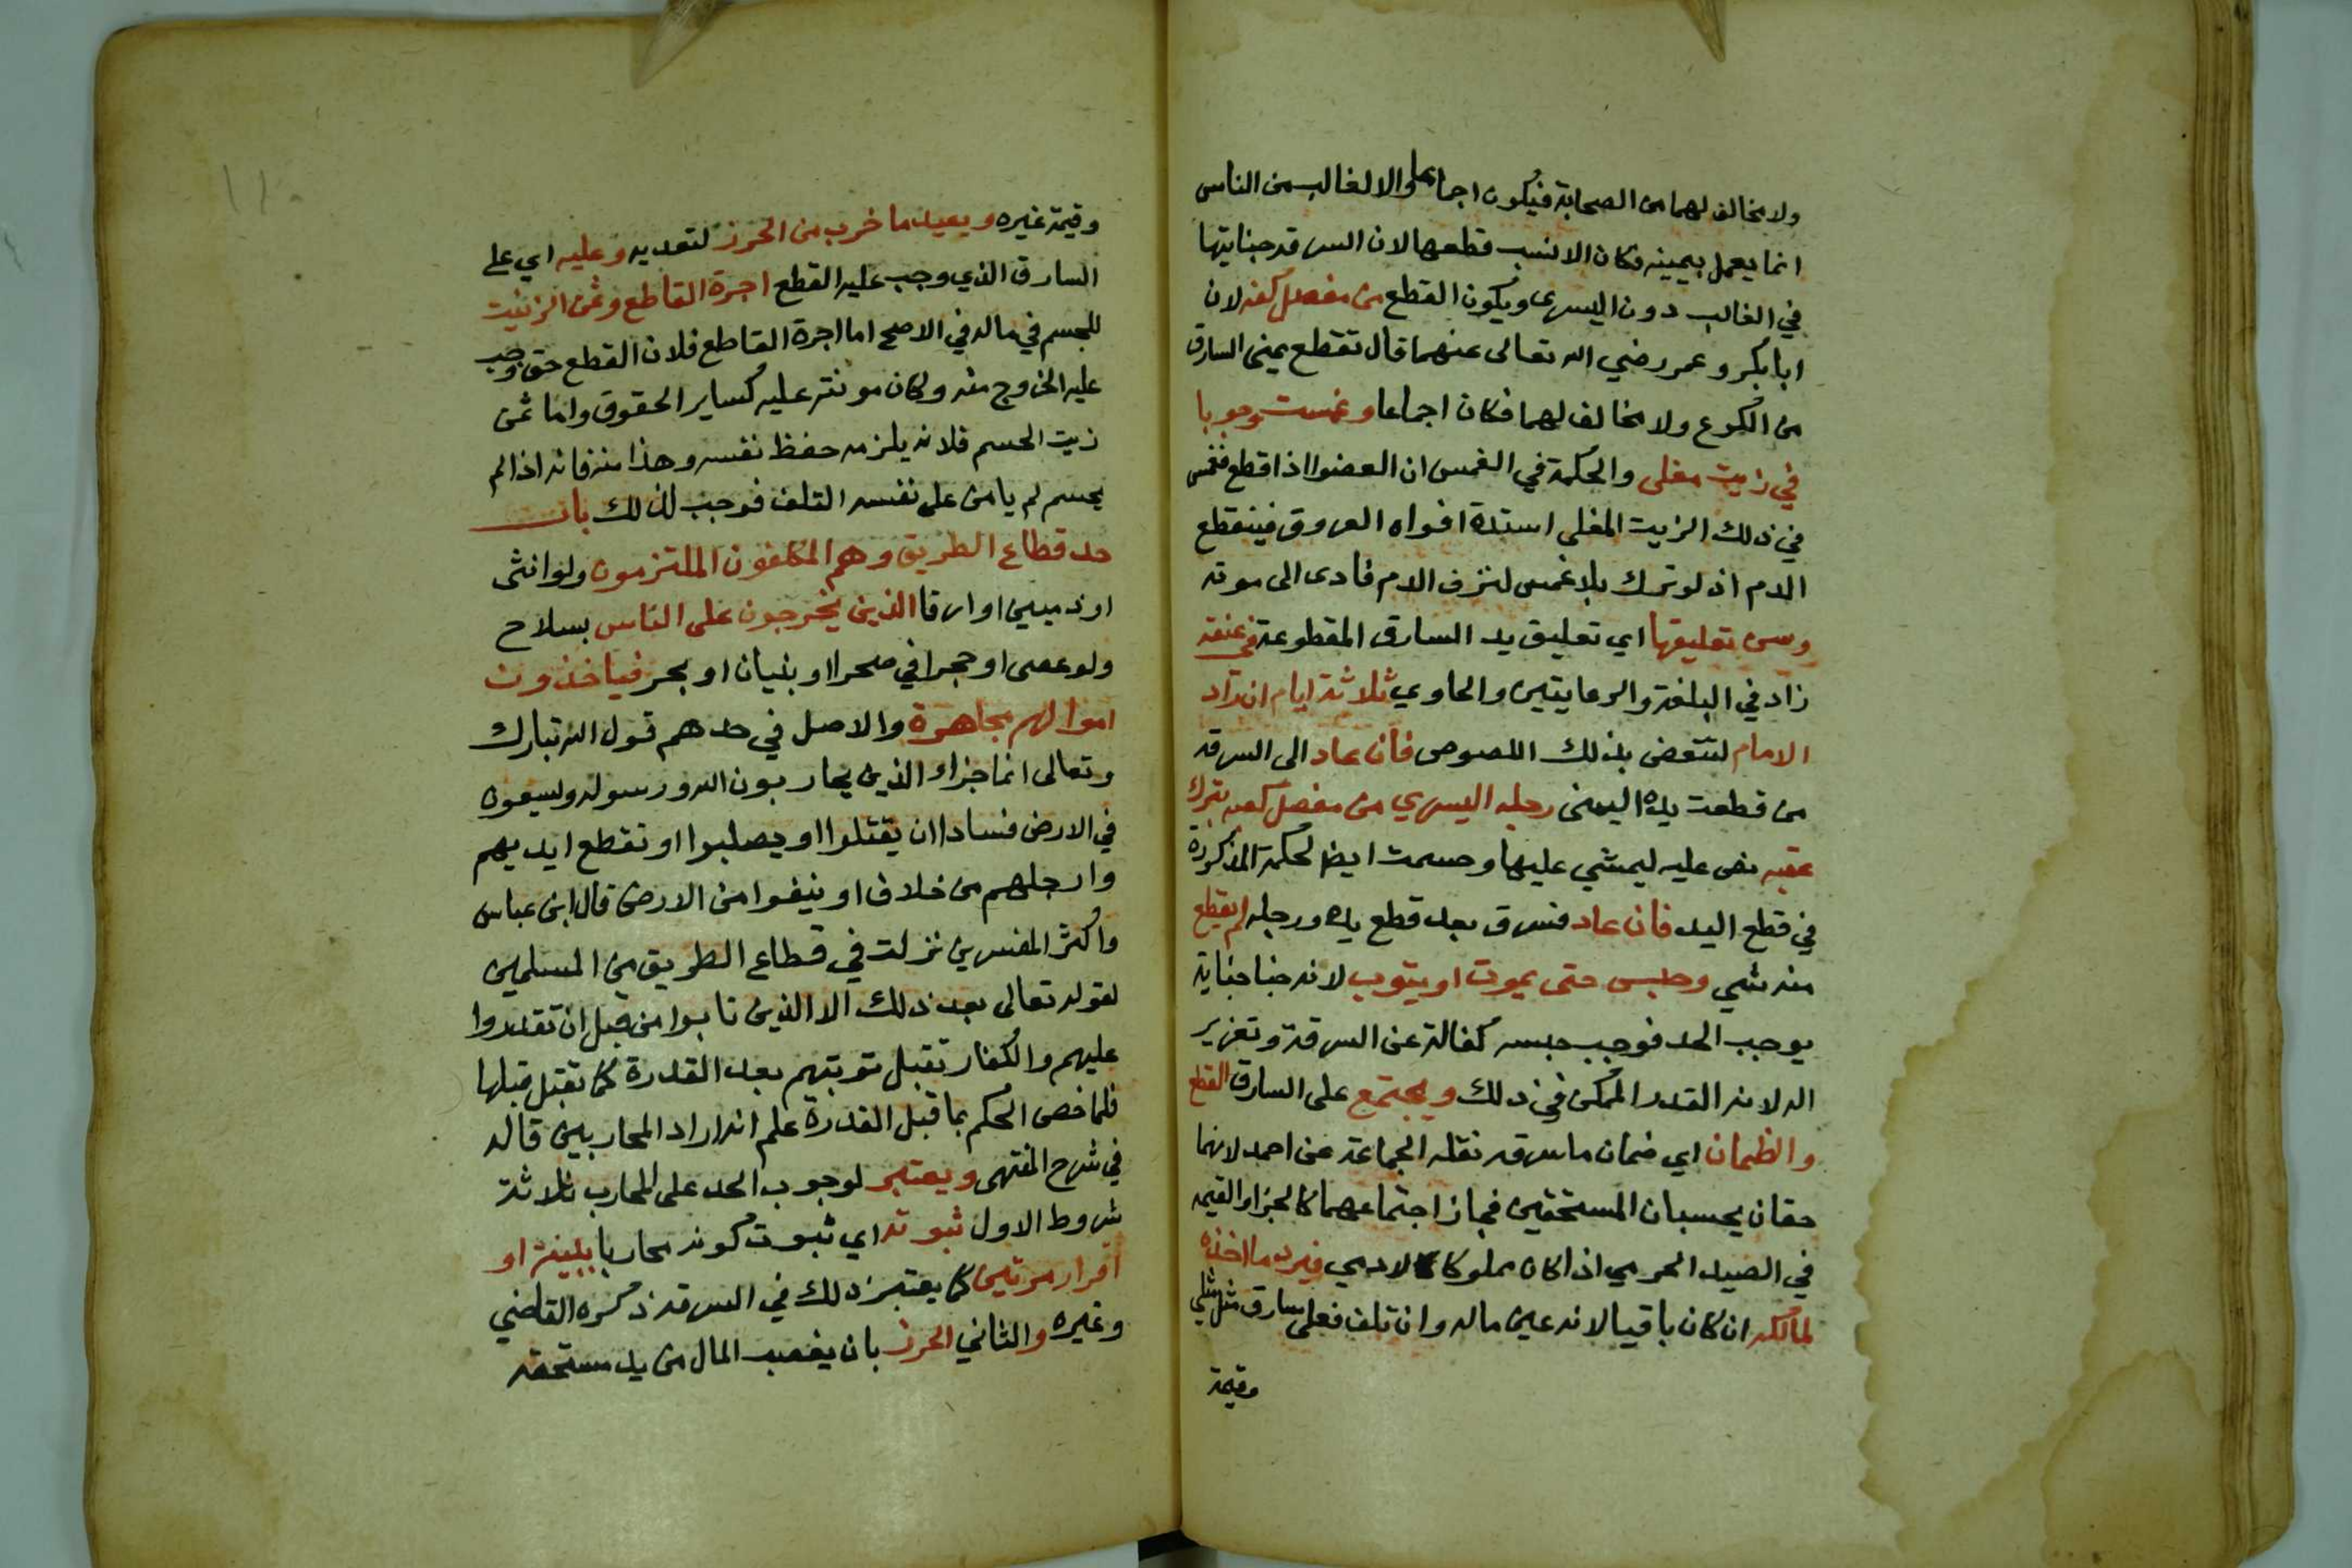 ولا مخالف لهما من الصحابة فيكون اجماعا والا لغالب من الناس
انما يعمل بيمينه فكان الانسب قطعها لان السرقه جنايتها
في الغالب دون اليسرى ويكون القطع من مفصل كفه لان
ابابكر وعمر رضي الله تعالى عنهما قال تقطع يمنى السارق
من الكوع ولا مخالف لهما فكان اجماعا وغمست وجوبا
في زيت مغلى والحكمة في الغمس ان العضوا اذا قطع فغمس
في ذلك الزيت المغلى استدة افواه العروق فينقطع
الدم اذ لو ترك بلا غمس لنزف الدم فادى الى موته
وسن تعليقها اي تعليق يد السارق المقطوعة في عنقه
زاد في البلغة والرعايتين والحاوي ثلاثة ايام ان راد
الامام لتتعض بذلك اللصوص فان عاد الى السرقه
من قطعت يده اليمنى رجله اليسري من مفصل كعبه بترك
عقبه نص عليه ليمشي عليها وحسمت ايضا لحكمة المذكورة
في قطع اليد فان عاد فسرق بعد قطع يده ورجله لم يقطع
منه شي وحبس حتى يموت او يتوب لانه جنا جناية
يوجب الحد فوجب حبسه كفالة عن السرقة وتعزير
اله لانه القدر الممكن في ذلك ويجتمع على السارق القطع
والظمان اي ضمان ما سرقه نقله الجماعة عن احمد لانهما
حقان يحسبان المستحقين فجاز اجتماعهما كالجزا والقيمه
في الصيد الحرمي اذا كان مملوكا لادمي فيرد ما اخذه
لمالكه ان كان باقيا لانه عين ماله وان تلف فعلى سارق مثل مثلي
وقيمة
١١٠
وقيمة غيره ويعيد ما خرب من الحرز لتعديه وعليه اي على
السارق الذي وجب عليه القطع اجرة القاطع وثمن الزيت
للحسم في ماله في الاصح اما اجرة القاطع فلان القطع حق وجب
عليه الخروج منه وكان مونته عليه كساير الحقوق واما ثمن
زيت الحسم فلانه يلزمه حفظ نفسه وهذا منه فانه اذا لم
يحسم لم يامن على نفسه التلف فوجب لذلك باب
حد قطاع الطريق وهم المكلفون الملتزمون ولو انثى
او ذميين او ارقا الذين يخرجون على الناس بسلاح
ولو عصى او حجرا في صحرا او بنيان او بحر فياخذون
اموالهم مجاهرة والاصل في حدهم قول الله تبارك
وتعالى انما جزاء الذين يحاربون الله ورسوله ويسعون
في الارض فسادا ان يقتلوا او يصلبوا او تقطع ايديهم
وارجلهم من خلاف او ينفوا من الارض قال ابن عباس
واكثر المفسرين نزلت في قطاع الطريق من المسلمين
لقوله تعالى بعد ذلك الا الذين تابوا من قبل ان تقدروا
عليهم والكفار تقبل توبتهم بعد القدرة كما تقبل قبلها
فلما خص الحكم بما قبل القدرة علم انه اراد المحاربين قاله
في شرح المنتهى ويعتبر لوجوب الحد على المحارب ثلاثة
شروط الاول ثبوته اي ثبوت كونه محاربا ببينة او
اقرار مرتين كما يعتبر ذلك في السرقه ذكره القاضي
وغيره والثاني الحرز بان يغصب المال من يد مستحقه